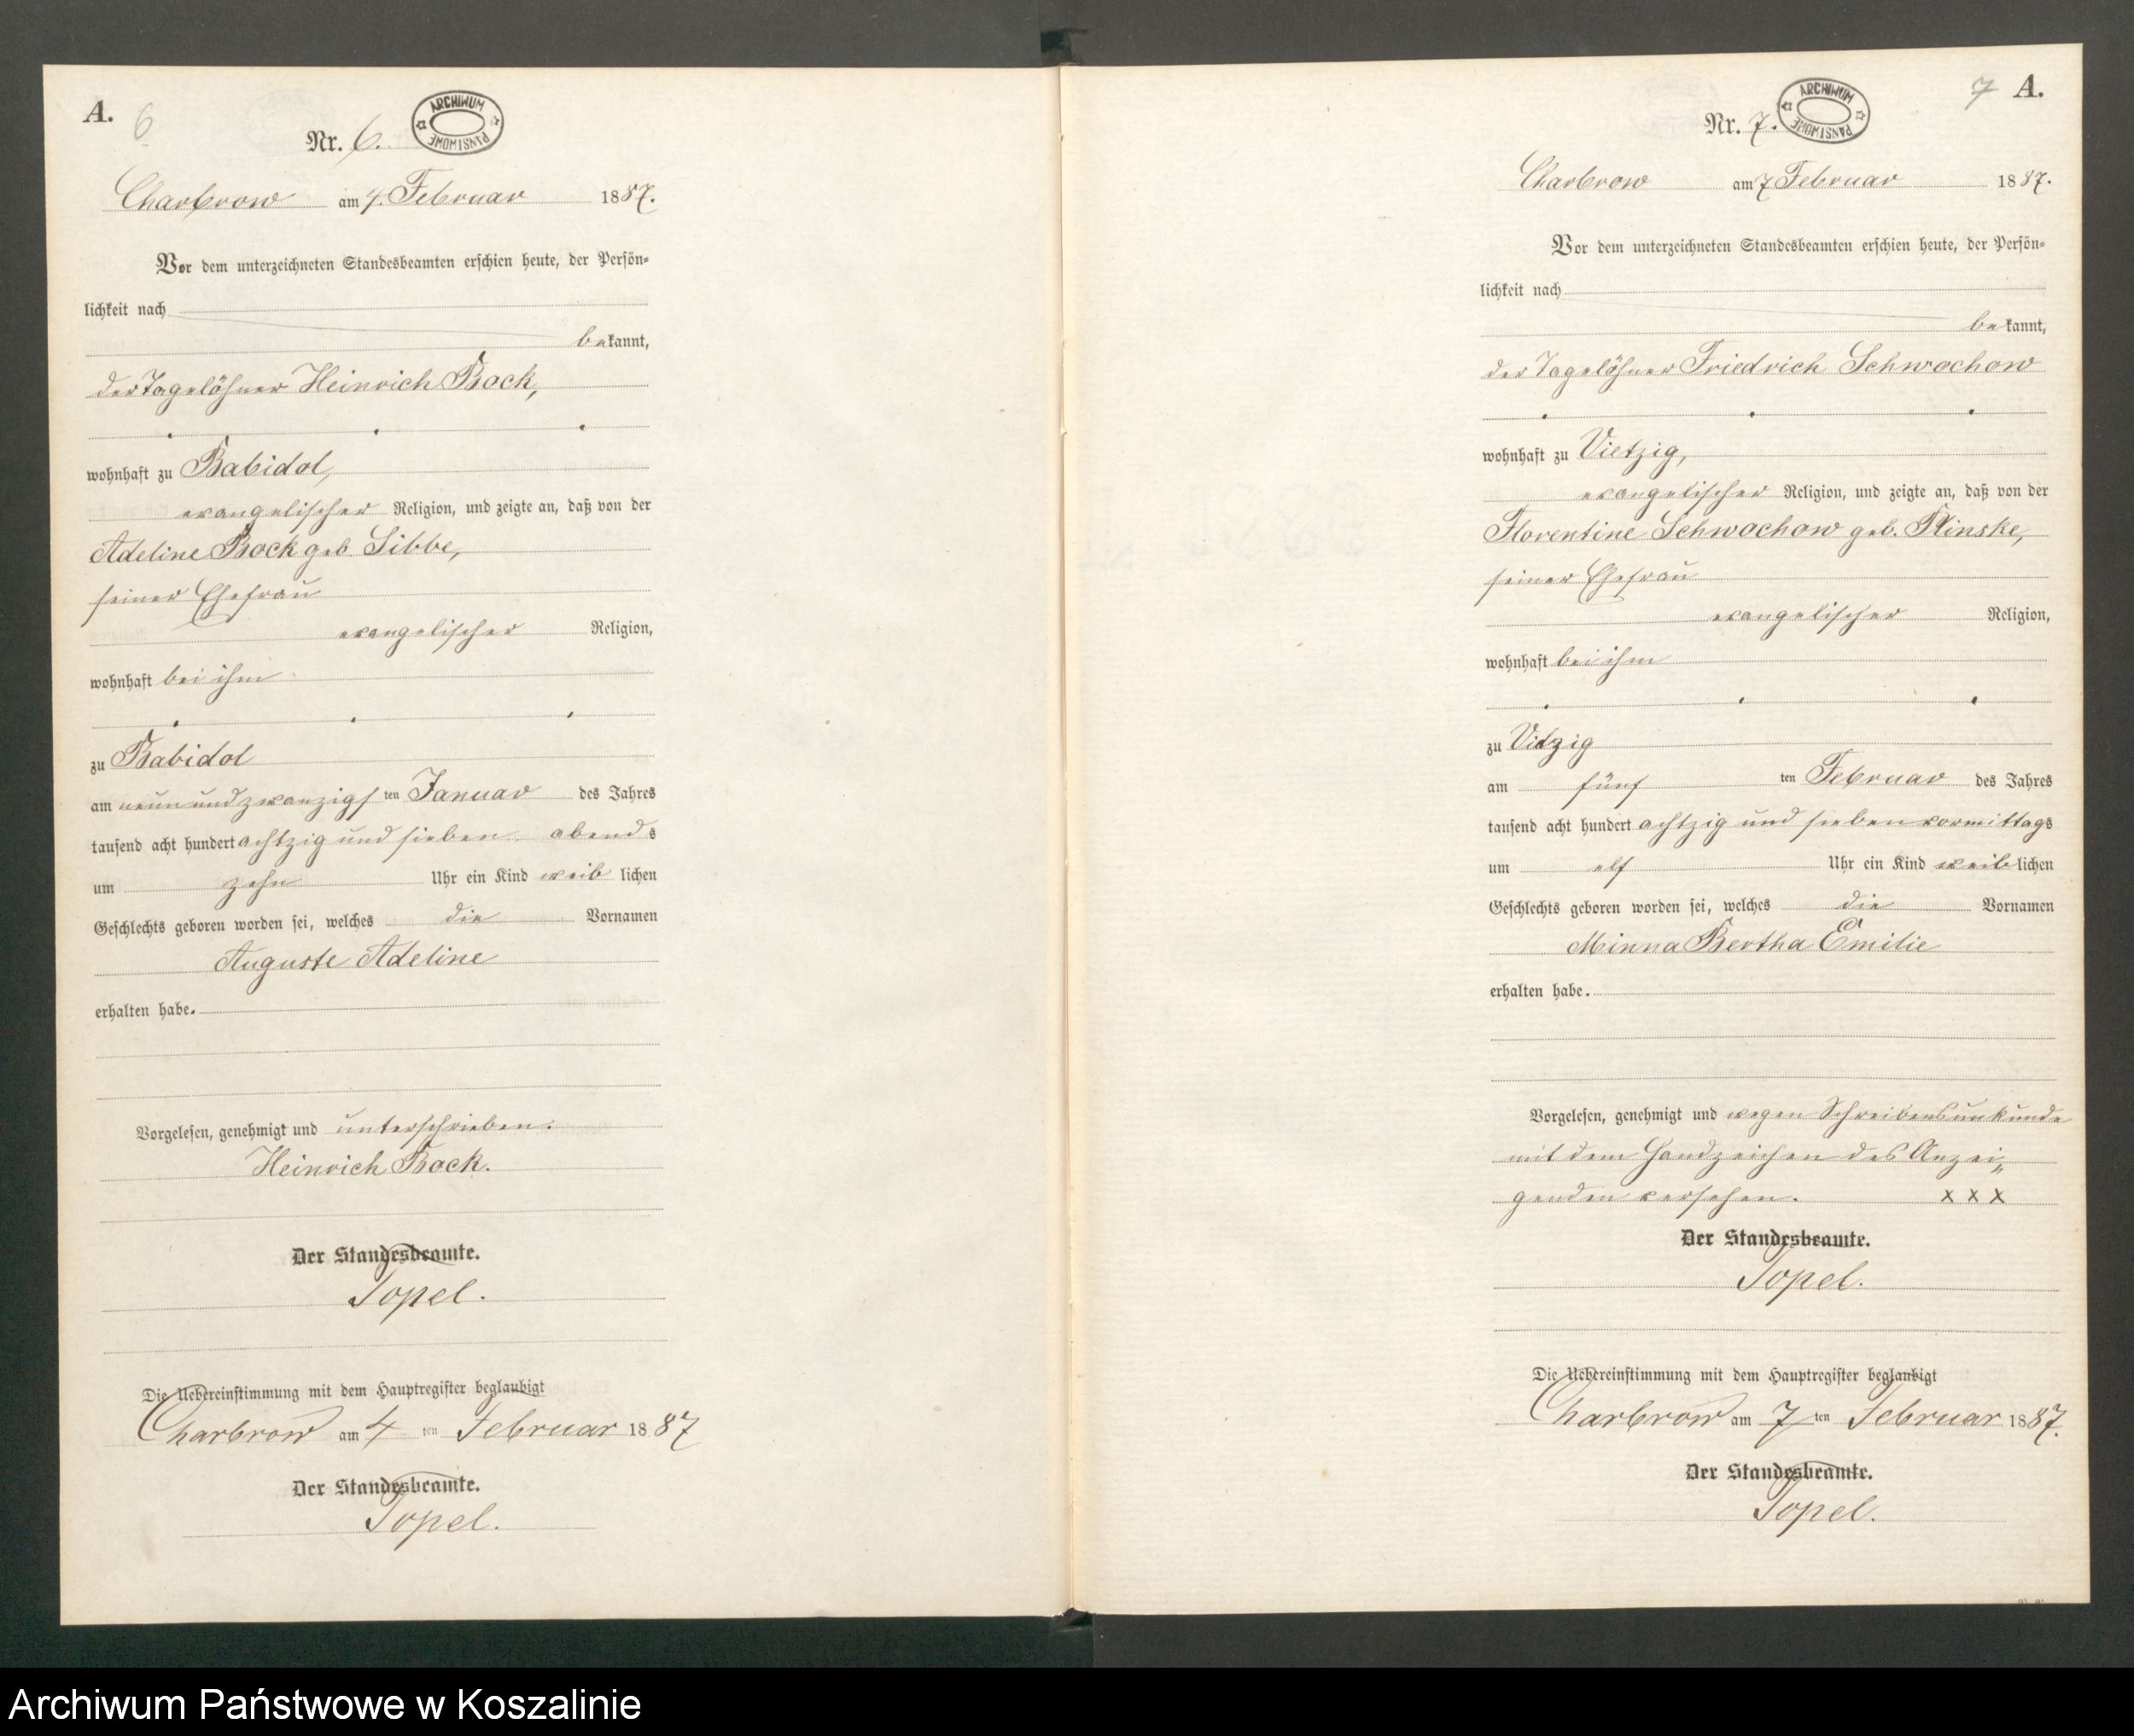 A. 6
ARCHIWUM PAŃSTWOWE
Nr. 6.
Charbrow am 4. Februar 1887.
Vor dem unterzeichneten Standesbeamten erschien heute, der Persön-
lichkeit nach
bekannt,
der Tagelöhner Heinrich Bock,
wohnhaft zu Babidol,
evangelischer Religion, und zeigte an, daß von der
Adeline Bock geb. Libbe,
seiner Ehefrau
evangelischer Religion,
wohnhaft bei ihm
zu Babidol
am neun und zwanzigsten Januar des Jahres
tausend acht hundert achtzig und sieben abends
um zehn Uhr ein Kind weiblichen
Geschlechts geboren worden sei, welches die Vornamen
Auguste Adeline
erhalten habe.
Vorgelesen, genehmigt und unterschrieben.
Heinrich Bock.
Der Standesbeamte.
Topel.
Die Uebereinstimmung mit dem Hauptregister beglaubigt
Charbrow am 4 ten Februar 1887
Der Standesbeamte.
Topel.
7 A.
ARCHIWUM PAŃSTWOWE
Nr. 7.
Charbrow am 7 Februar 1887.
Vor dem unterzeichneten Standesbeamten erschien heute, der Persön-
lichkeit nach
bekannt,
der Tagelöhner Friedrich Schwochow
wohnhaft zu Vietzig,
evangelischer Religion, und zeigte an, daß von der
Florentine Schwochow geb.
seiner Ehefrau
evangelischer Religion,
wohnhaft bei ihm
zu Vitzig
am fünf ten Februar des Jahres
tausend acht hundert achtzig und sieben vormittags
um elf Uhr ein Kind weiblichen
Geschlechts geboren worden sei, welches die Vornamen
Minna Bertha Emilie
erhalten habe.
Vorgelesen, genehmigt und wegen Schreibensunkunde
mit dem Handzeichen des Anzei„
genden versehen. x x x
Der Standesbeamte.
Topel.
Die Uebereinstimmung mit dem Hauptregister beglaubigt
Charbrow am 7 ten Februar 1887.
Der Standesbeamte.
Topel.
Archiwum Państwowe w Koszalinie